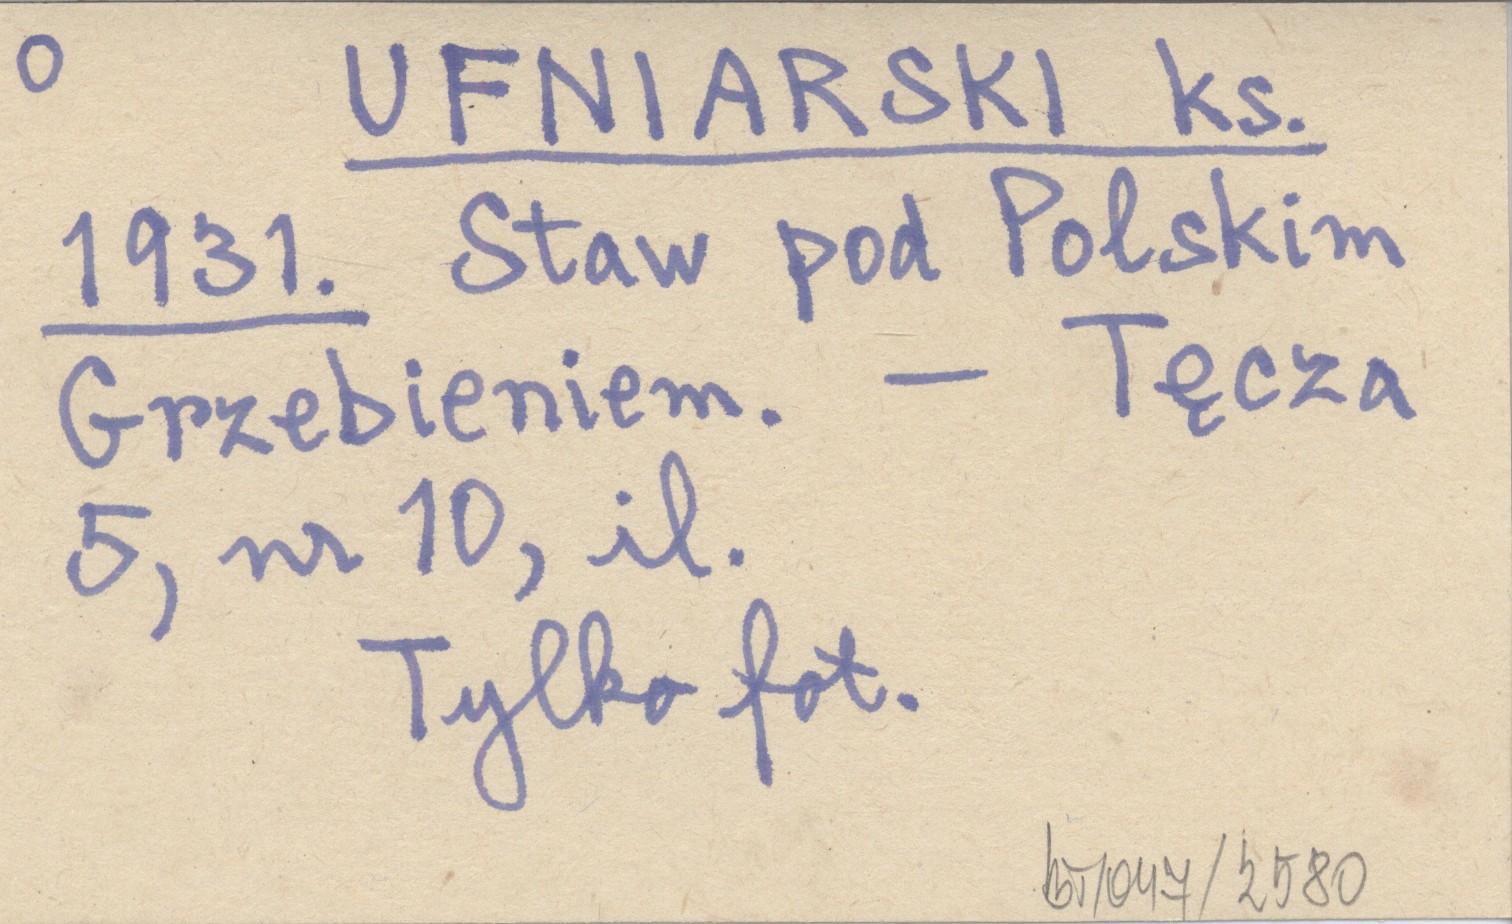 O UFNIARSKI ks.
1931. Staw pod Polskim
Grzebieniem. — Tęcza
5, nr 10, il.
Tylko fot.
/2580